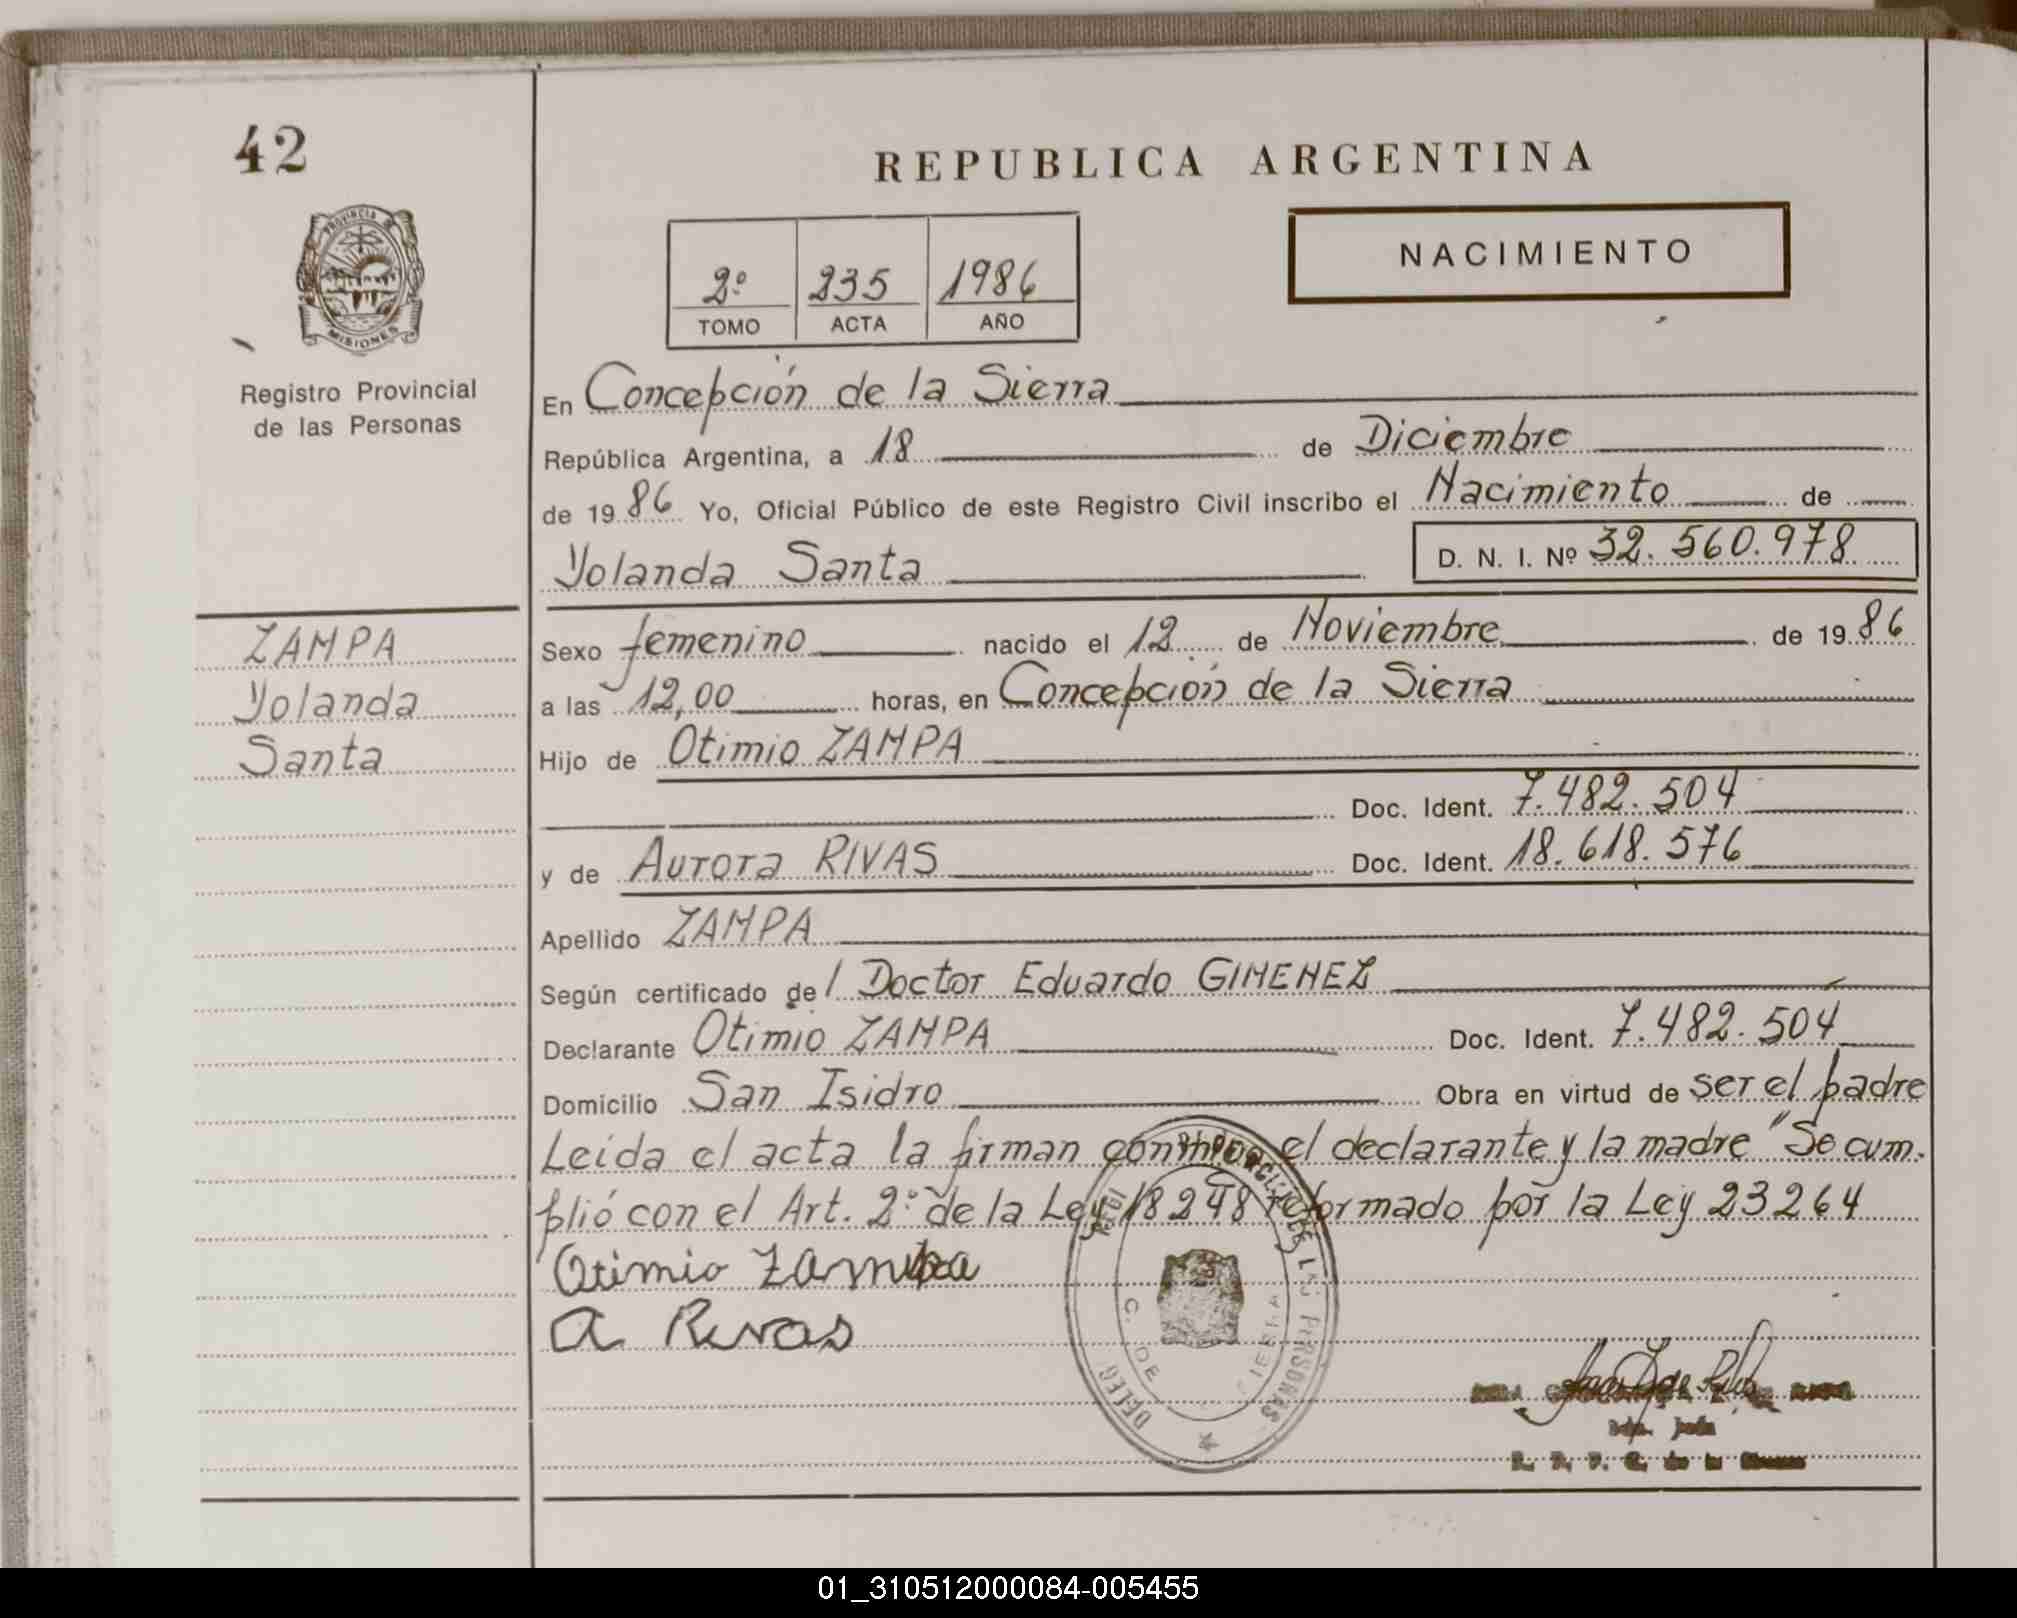 42
REPUBLICA ARGENTINA
PROVINCIA DE
MISIONES
Registro Provincial
de las Personas
2º 235 1986
TOMO ACTA AÑO
NACIMIENTO
En Concepción de la Sierra
República Argentina, a 18 de Diciembre
de 1986 Yo, Oficial Público de este Registro Civil inscribo el Nacimiento de
Yolanda Santa D. N. I. Nº 32.560.978
ZAMPA
Yolanda
Santa
Sexo femenino nacido el 12 de Noviembre de 1986
a las 12,00 horas, en Concepción de la Sierra
Hijo de Otimio ZAMPA
Doc. Ident. 7.482.504
y de Aurora RIVAS Doc. Ident. 18.618.576
Apellido ZAMPA
Según certificado del Doctor Eduardo GIMENEZ
Declarante Otimio ZAMPA Doc. Ident. 7.482.504
Domicilio San Isidro Obra en virtud de ser el padre
Leída el acta la firman conmigo el declarante y la madre "Se cum-
plió con el Art. 2º de la Ley 18248 reformado por la Ley 23264
Otimio Zampa
A Rivas
DE LAS PERSONAS
DELEG
C. DE
01_310512000084-005455